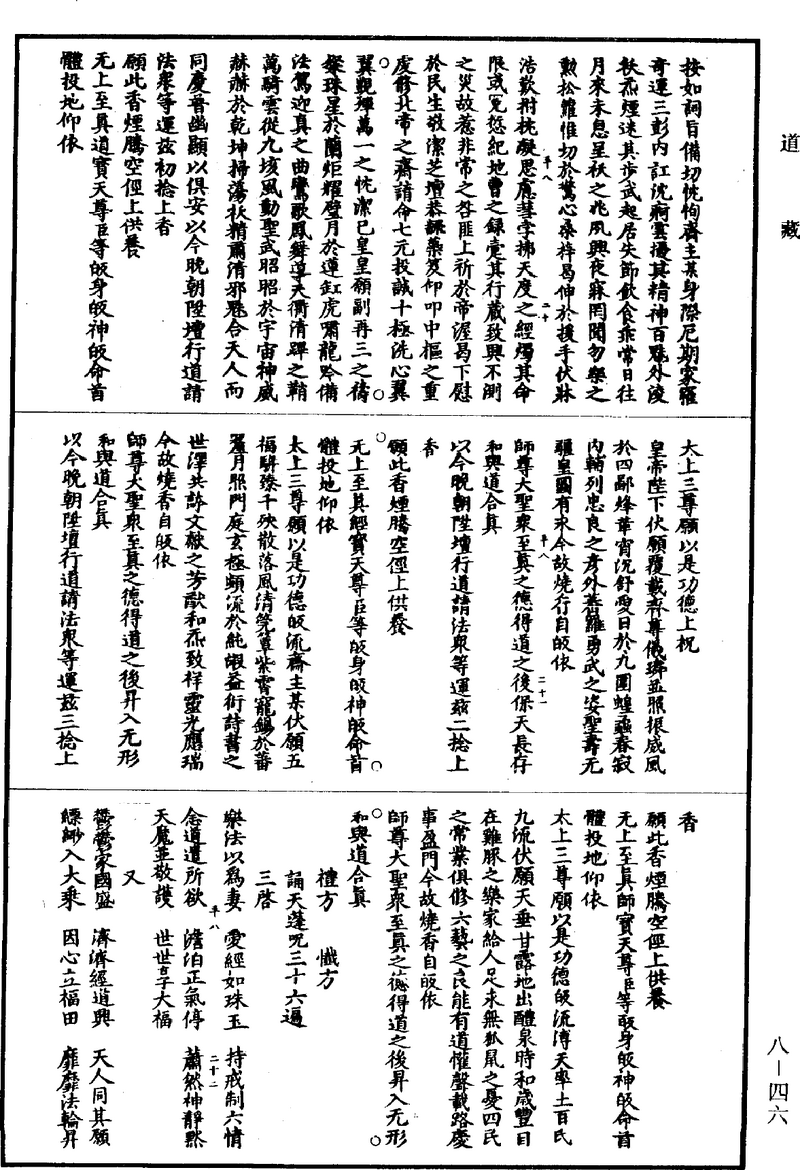 道藏
按如詞旨備切忱恂齋主某身際厄期家羅
奇運三彭内訌沈痾雲擾其精神百魃外淩
秋炁煙迷其步武起居失節飲食乖常日往
月來未息呈袄之兆夙興夜寐罔聞勿藥之
勲松蘿惟切於驚心桑梓曷伸於援手伏牀
浩歎拊枕凝思慮彗孛拂天度之經燭其命
限或寃愆紀地曹之錄毫其行藏致興不測
之災故惹非常之咎匪上祈於帝渥曷下慰
於民生敬潔芝壇恭繙蘂笈仰叩中樞之重
虔修北帝之齋請命七元投誠十極洗心翼
翼觀輝萬一之忱潔已皇皇願副再三之禱
燦珠星於蘭炬耀璧月於蓮缸虎嘯龍吟備
法駕迎真之曲鸞歌鳳舞導天衢清蹕之鞘
萬騎雲從九垓風動聖武昭昭於宇宙神威
赫赫於乾坤掃蕩袄精肅清邪魃合天人而
同慶普幽顯以俱安以今晚朝陞壇行道請
法衆等運兹初捻上香
願此香煙騰空徑上供養
无上至真道寶天尊臣等皈身皈神皈命首
體投地仰依
太上三尊願以是功德上祝
皇帝陛下伏願覆載齊尊儀璘並照振威風
於四鄙烽華宵沉舒愛日於九圍蝗蝨春寂
内輔列忠良之彦外蕃羅勇武之姿聖壽无
疆皇圖有永今故燒行自皈依
師尊大聖衆至真之德得道之後保天長存
和與道合真
以今晚朝陞壇行道請法衆等運兹二捻上
香
願此香煙騰空徑上供養
无上至真經寶天尊臣等皈身皈神皈命首
體投地仰依
太上三尊願以是功德皈流齋主某伏願五
福駢臻千殃散落風清筦簟紫霄寵錫於蕃
釐月照門庭玄極頻流於純嘏益衍詩書之
世澤共詠文獻之芳猷和炁致祥靈光應瑞
今故燒香自皈依
師尊大聖衆至真之德得道之後昇入无形
和與道合真
以今晚朝陞壇行道請法衆等運兹三捻上
香
願此香煙騰空徑上供養
无上至真師寶天尊臣等皈身皈神皈命首
體投地仰依
太上三尊願以是功德皈流溥天率土百民
九流伏願天垂甘露地出醴泉時和歲豐目
在雞豚之樂家給人足永無狐鼠之憂四民
之常業俱修六藝之良能有道懽聲載路慶
事盈門今故燒香自皈依
師尊大聖衆至真之德得道之後昇入无形
和與道合真
禮方　懺方
誦天蓬呪三十六遍
三啓
樂法以爲妻　愛經如珠玉　持戒制六情
念道遣所欲　澹泊正氣停　蕭然神靜默
天魔並敬護　世世享大福
又
鬱鬱家國盛　濟濟經道興　天人同其願
縹緲入大乘　因心立福田　靡靡法輪昇
平八　二十
平八　二十一
平八　二十二
八—四六